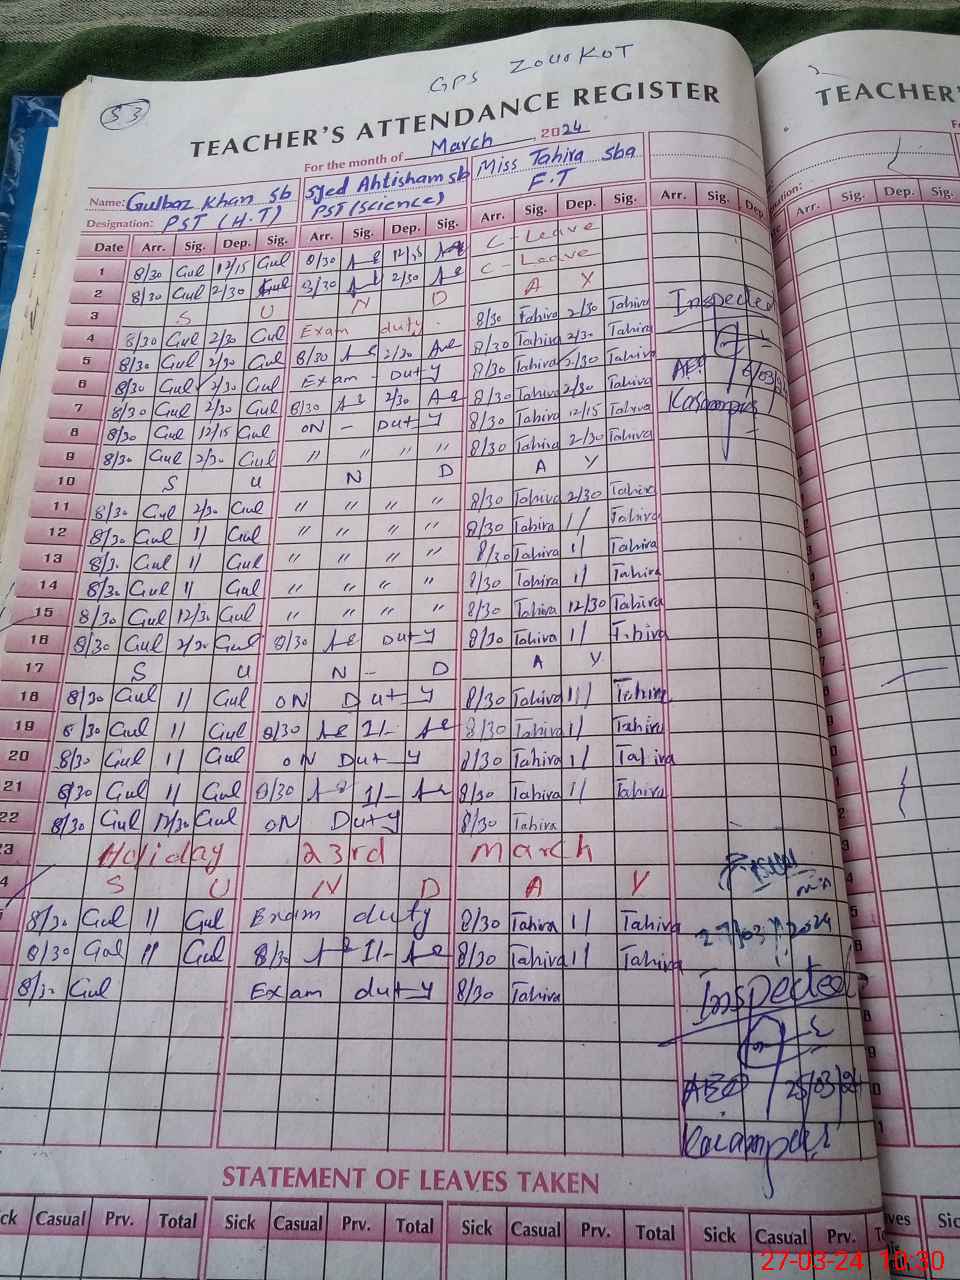 GPS ZOURKOT
53
TEACHER'S ATTENDANCE REGISTER
For the month of March, 2024
Name: Gulbaz Khan Sb Syed Ahtisham sb Miss Tahira Sba
Designation: PST (H.T) PST (Science) F.T
Date Arr. Sig. Dep. Sig. Arr. Sig. Dep. Sig. Arr. Sig. Dep. Sig. Arr. Sig. Dep. Sig.
1 8/30 Gul 12/15 Gul 8/30 12/15 C-Leave
2 8/30 Gul 2/30 Gul 8/30 2/30 C-Leave
3 S U N D A Y
4 8/30 Gul 2/30 Gul Exam duty. 8/30 Tahira 2/30 Tahira
5 8/30 Gul 2/30 Gul 8/30 2/30 8/30 Tahira 2/30 Tahira
6 8/30 Gul 2/30 Gul Exam - Duty 8/30 Tahira 2/30 Tahira
7 8/30 Gul 2/30 Gul 8/30 2/30 8/30 Tahira 2/30 Tahira
8 8/30 Gul 12/15 Gul ON - Duty 8/30 Tahira 12/15 Tahira
9 8/30 Gul 2/30 Gul " " " " 8/30 Tahira 2/30 Tahira
10 S U N D A Y
11 8/30 Gul 2/30 Gul " " " " 8/30 Tahira 2/30 Tahira
12 8/30 Gul 11 Gul " " " " 8/30 Tahira 11 Tahira
13 8/30 Gul 11 Gul " " " " 8/30 Tahira 11 Tahira
14 8/30 Gul 11 Gul " " " " 8/30 Tahira 11 Tahira
15 8/30 Gul 12/30 Gul " " " " 8/30 Tahira 12/30 Tahira
16 8/30 Gul 2/30 Gul 8/30 Duty 8/30 Tahira 11 Tahira
17 S U N - D A Y
18 8/30 Gul 11 Gul ON Duty 8/30 Tahira 11 Tahira
19 8/30 Gul 11 Gul 8/30 1/- 8/30 Tahira 11 Tahira
20 8/30 Gul 11 Gul ON Duty 8/30 Tahira 11 Tahira
21 8/30 Gul 11 Gul 8/30 1/- 8/30 Tahira 11 Tahira
22 8/30 Gul 12/30 Gul ON Duty 8/30 Tahira
23 Holiday 23rd March
4 S U N D A Y
8/30 Gul 11 Gul Exam duty 8/30 Tahira 11 Tahira
8/30 Gul 11 Gul 8/30 1/- 8/30 Tahira 11 Tahira
8/30 Gul Exam duty 8/30 Tahira
Inspected
AEO
27/03/2024
Inspected
AEO 25/03/24
STATEMENT OF LEAVES TAKEN
ck Casual Prv. Total Sick Casual Prv. Total Sick Casual Prv. Total Sick Casual Prv.
TEACHER'
Arr. Sig. Dep. Sig.
27-03-24 10:30